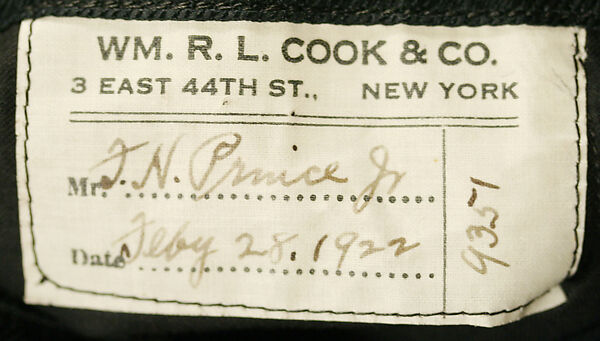 WM. R. L. COOK & CO.
3 EAST 44TH ST., NEW YORK
Mr. F. N. Prince Jr
Date Feby 28, 1922
9351